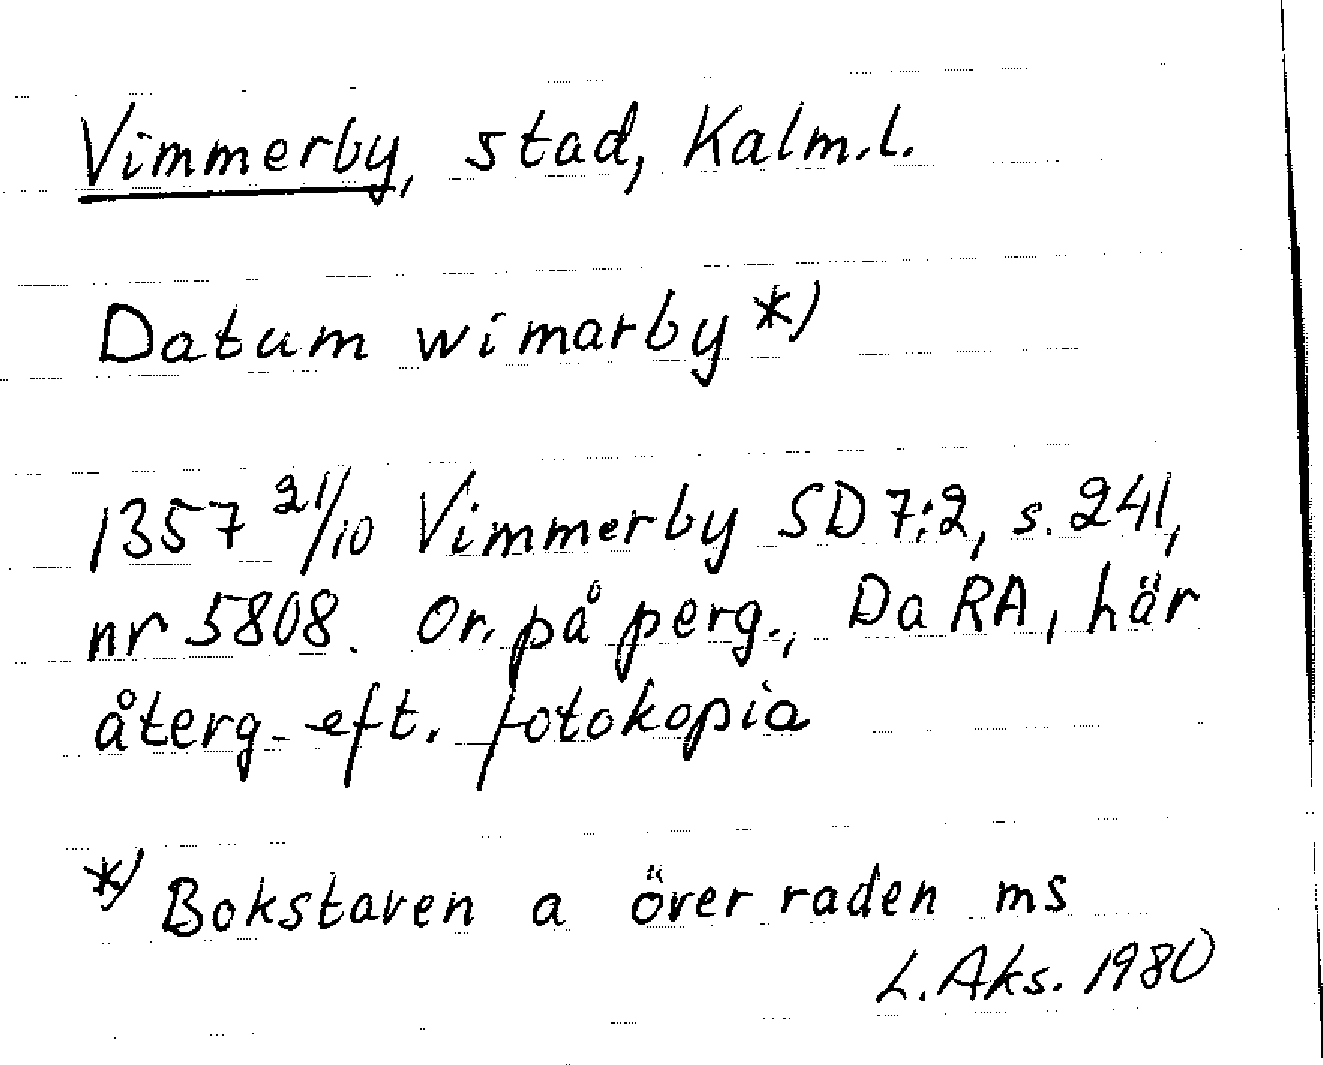 Vimmerby, stad, Kalm.l.
Datum wimarby *)
1357 21/10 Vimmerby SD 7:2, s. 241,
nr 5808. Or. på perg., Da RA, här
återg. eft. fotokopia
*) Bokstaven a över raden ms
L. Aks. 1980